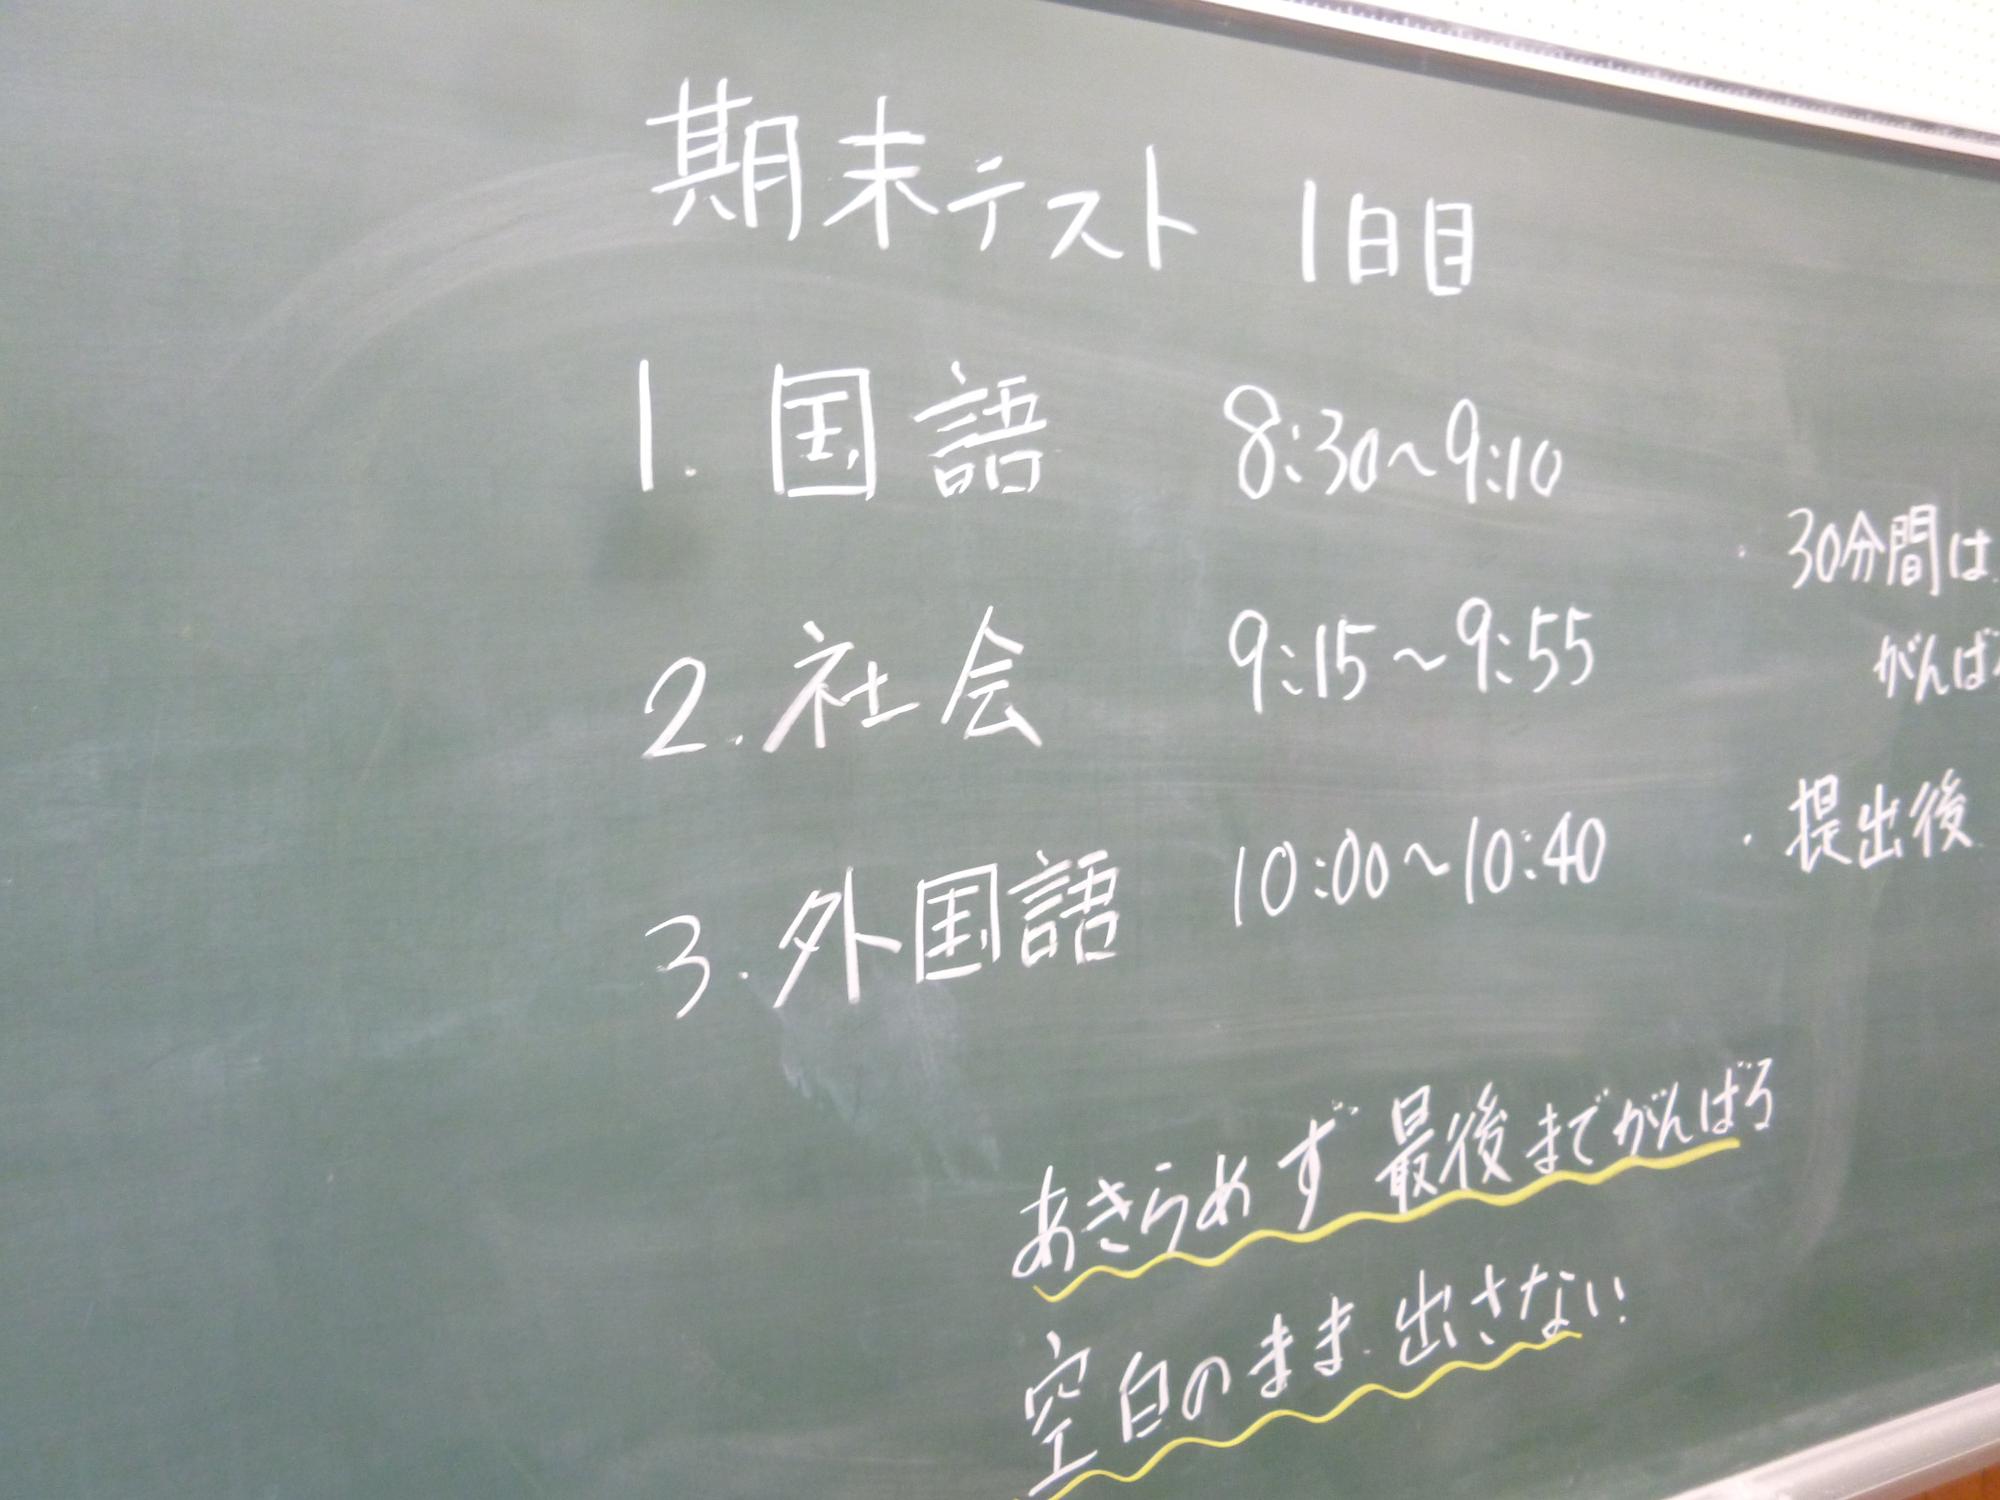 期末テスト 1日目
1. 国語 8:30~9:10
2. 社会 9:15~9:55
3. 外国語 10:00~10:40
・30分間は
がんば
・提出後
あきらめず 最後までがんばろ
空白のまま出さない